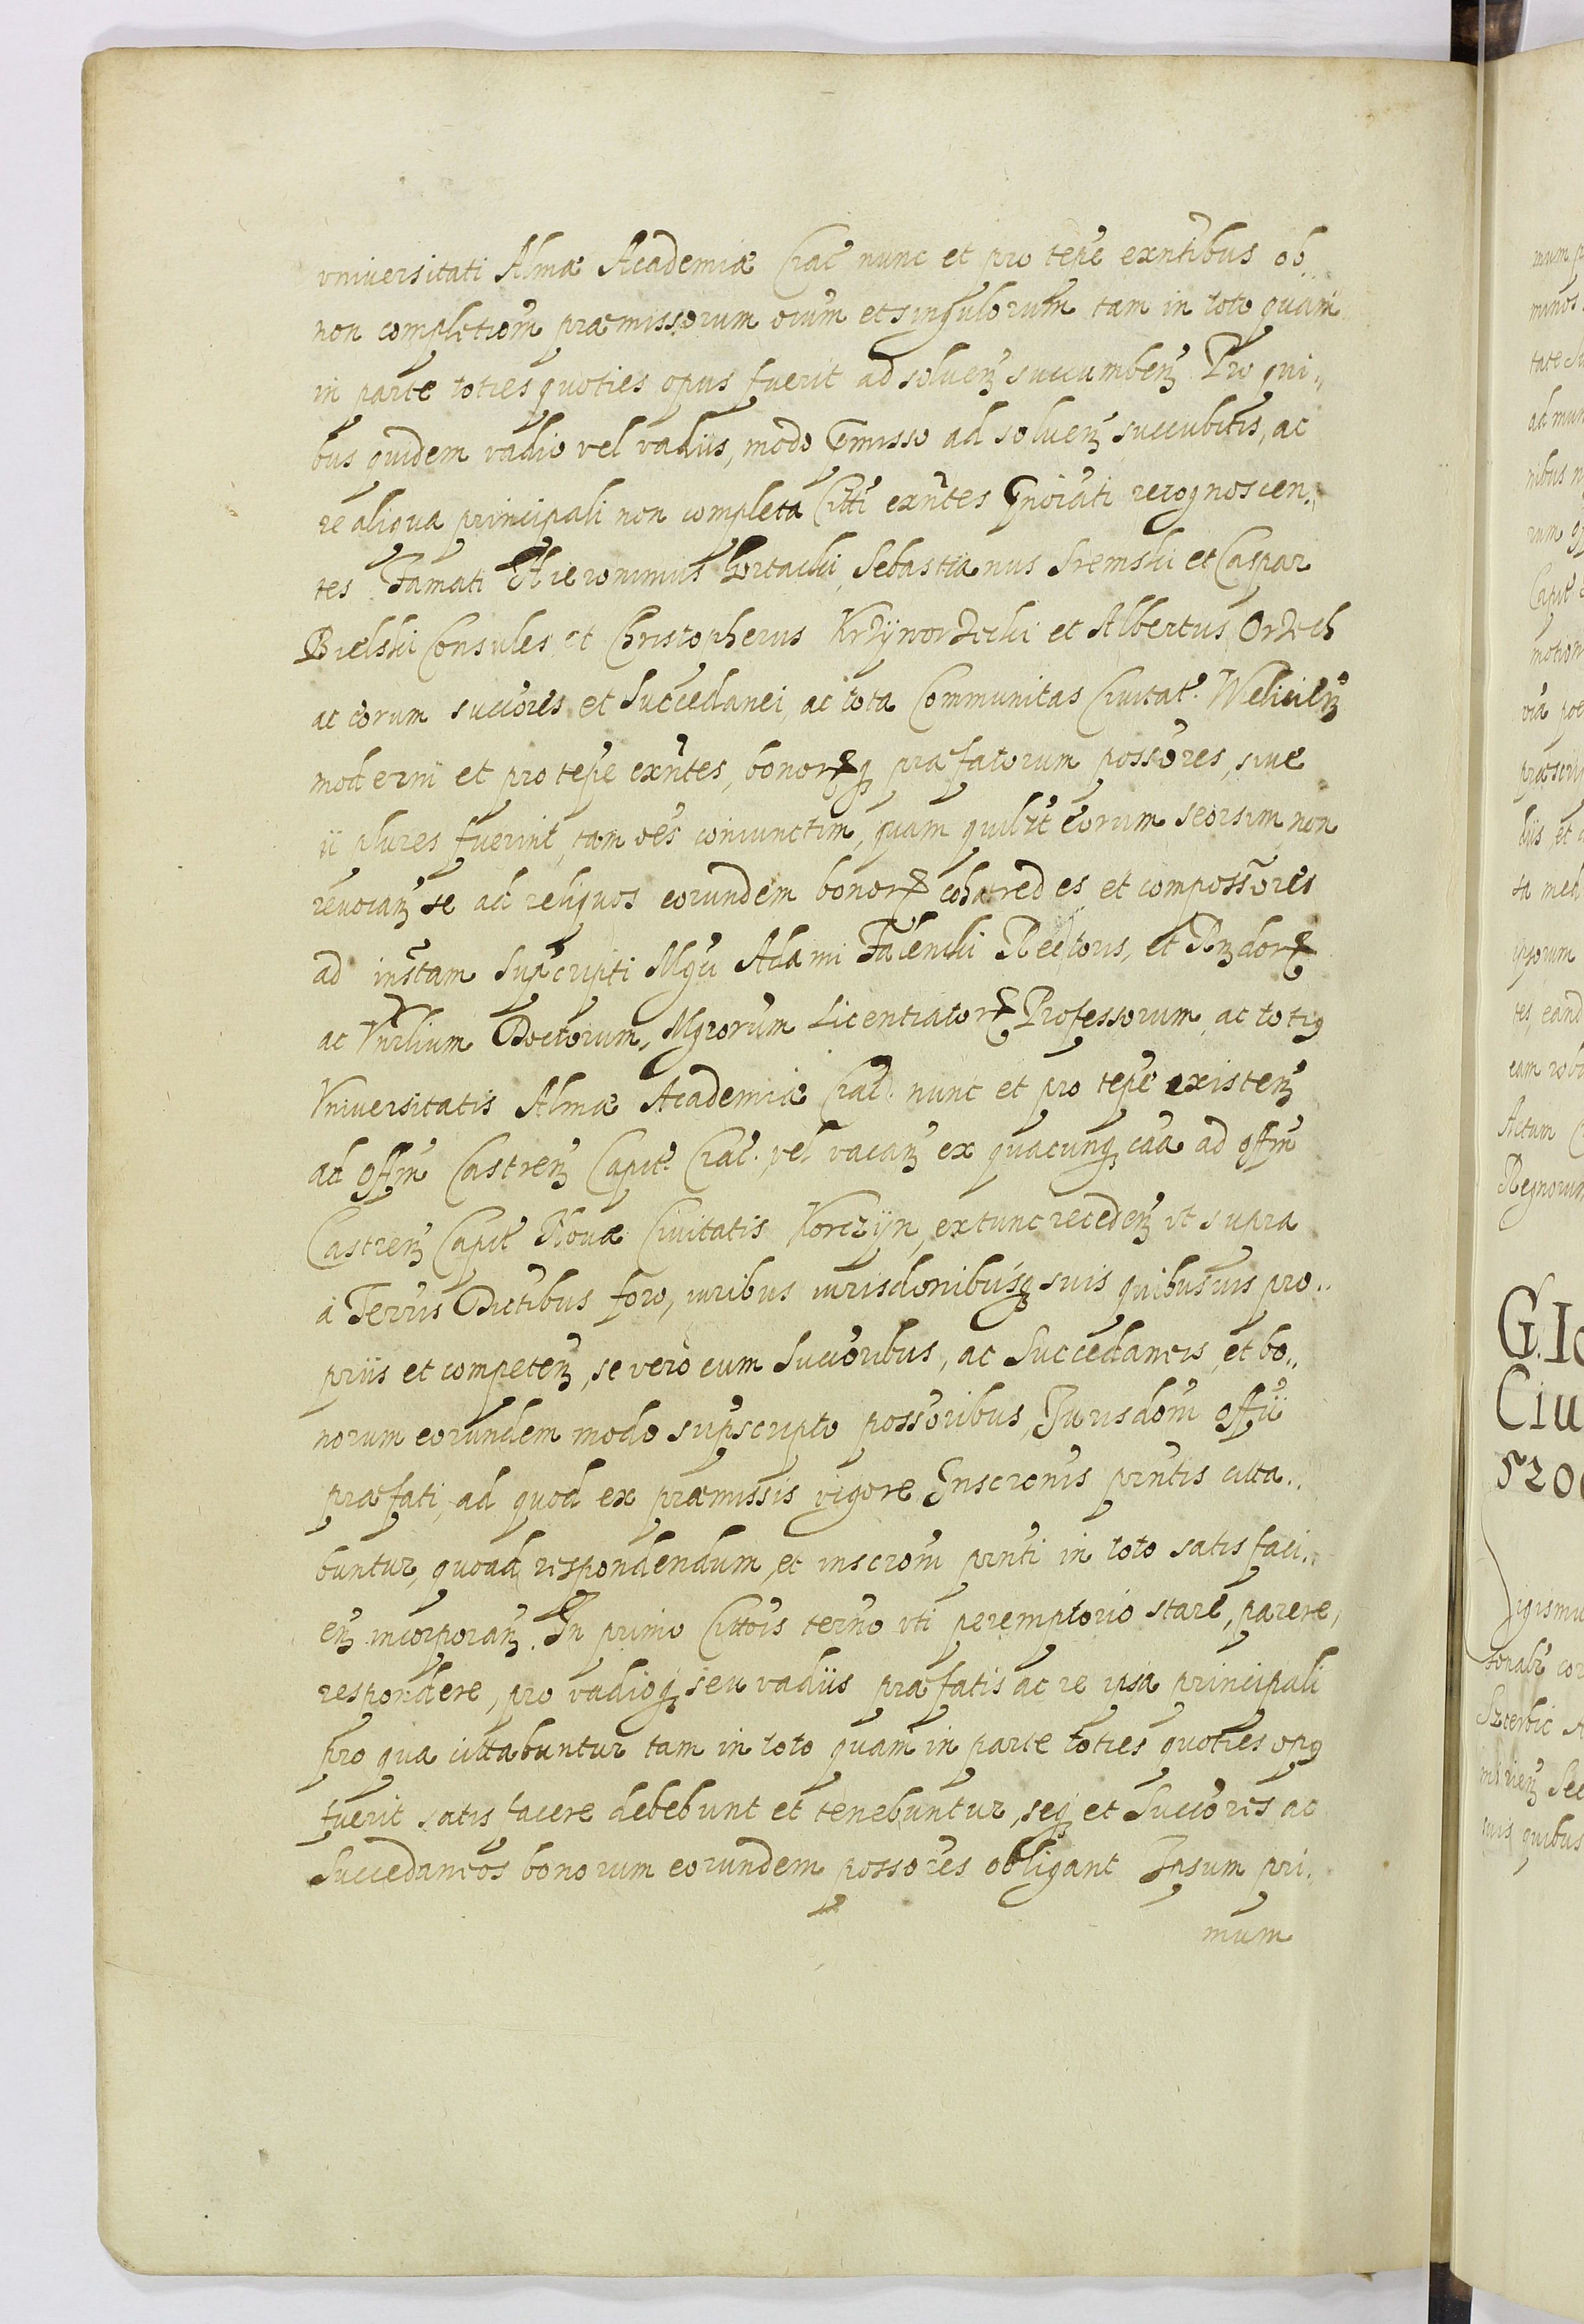 vniversitati Almæ Academiæ Crac̃ nunc et pro tẽpe exñtibus ob..
non completiõm præmissorum oĩum et singulorum tam in toto quam
in parte toties quoties opus fuerit ad solueñ succumbeñ Pro qui„
bus quidem vadio vel vadiis, modo p̃misso ad solueñ succubitis, ac
re aliqua principali non completa Citti exñtes p̃noĩati recognoscen„
tes Famati Hieronimus Sebastianus Sremski et Caspar
Bielski Consules et Christopherus et Albertus Orzech
ac eorum succ̃ores et Succedanei, ac tota Communitas Civitat. Welicieñ
moderni et pro tẽpe exñtes, bonorꝝqꝫ præfatorum poss̃ores, siue
ii plures fuerint, tam oẽs coniunctim, quam quilib̃t eorum seorsim, non
reuocañ se ad reliquos eorundem bonorꝝ cohæredes et composs̃ores
ad inst̃am sup̃scripti Mg̃ci Adami Falencki Rectoris, et
ac Vñrlium Doctorum, Mgrorum Licentiatorꝝ Professorum, ac totiꝯ
Vniversitatis Almæ Academiæ Crac̃. nunc et pro tẽpe existeñ
ad Off̃m Castreñ Capit̃ Crac̃. vel vacañ ex quacunqꝫ cãa ad off̃m
Castreñ Capit̃ Nouæ Ciuitatis Korczÿn, extunc recedeñ vt supra
à Terris Dictibus foro, iuribus iurisdonibusqꝫ suis quibusuis pro..
priis et competeñ, se vero cum Succ̃oribus, ac Succedaneis, et bo..
norum eorundem modo sup̃scripto poss̃oribus, Jurisdoñi off̃ii
præfati, ad quod ex præmissis vigore Inscronis p̃ntis citta..
buntur, quoad respondendum, et inscroñi p̃nti in toto satis faci..
eñ incorporañ. In primo Cittõis termo vti peremptorio stare, parere,
respondere, pro vadioqꝫ seu vadiis præfatis ac re ipsa principali
pro qua cittabuntur tam in toto quam in parte toties quoties opꝯ
fuerit satis facere debebunt et tenebuntur, seqꝫ et Succ̃ores ac
Succedaneos bonorum eorundem possores obligant Ipsum pri..
mum